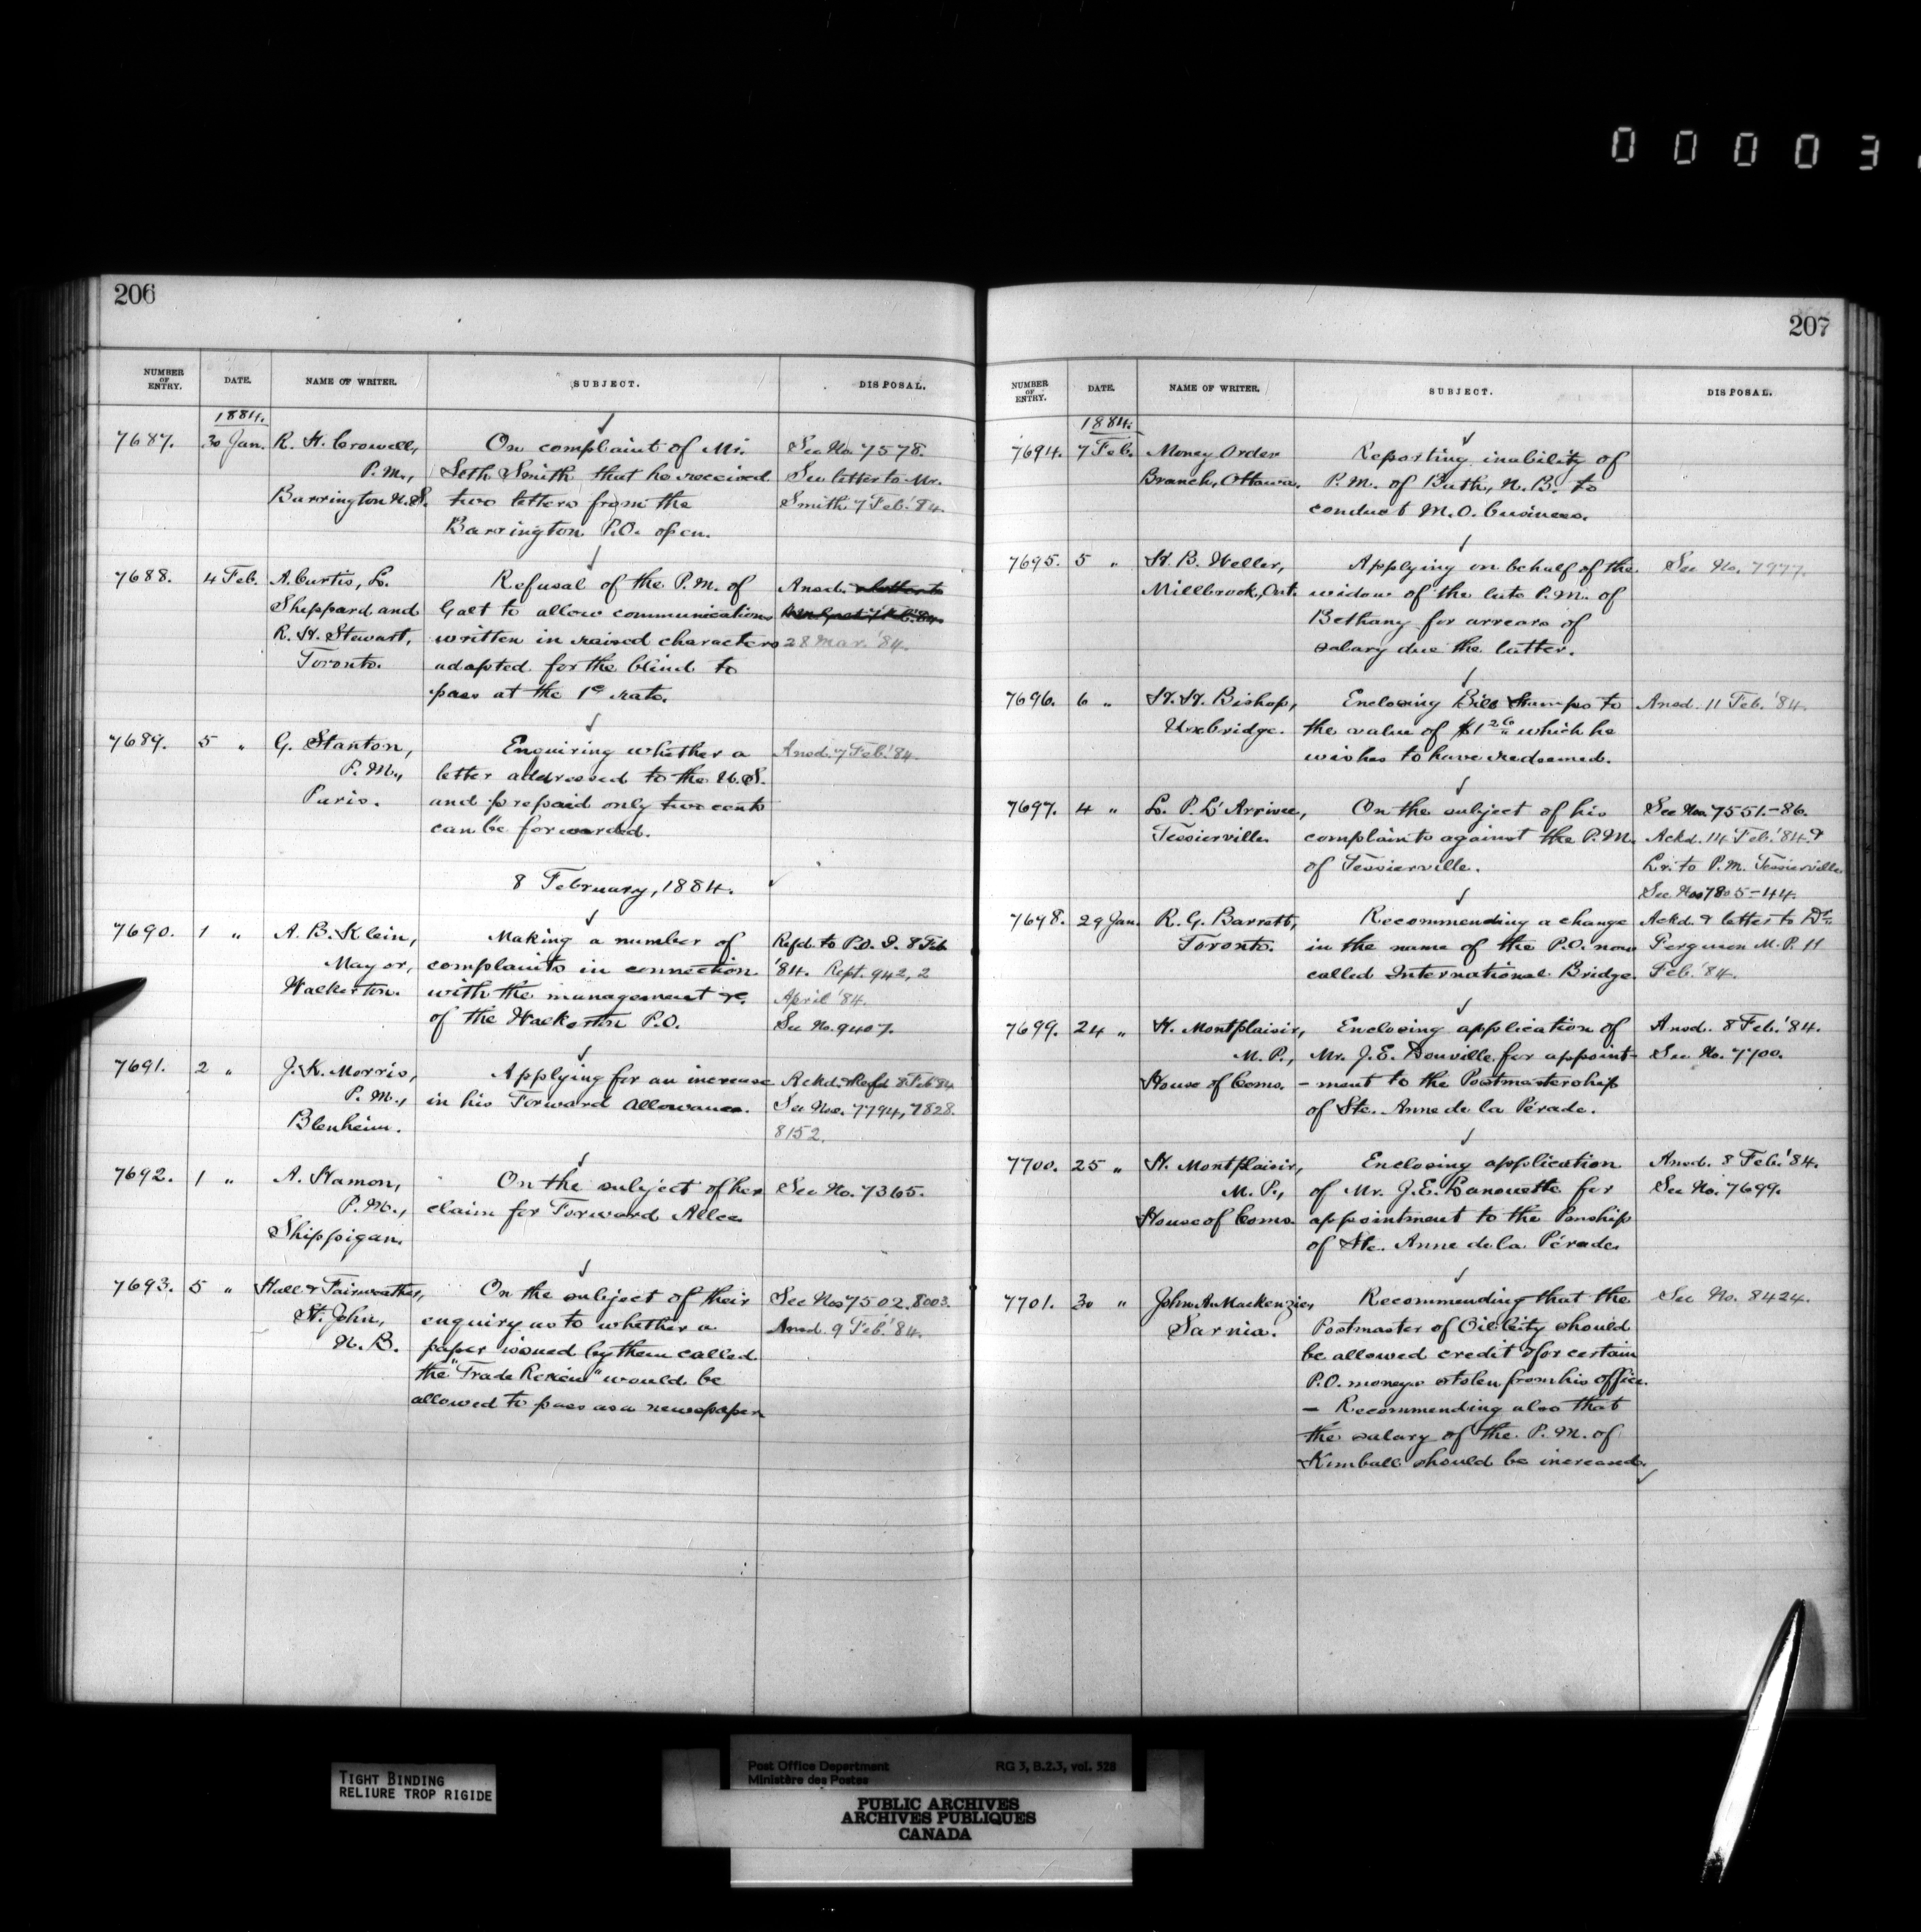 0 0 0 0 3
206
NUMBER OF ENTRY. DATE. NAME OF WRITER. SUBJECT. DISPOSAL.
1884.
7687. 30 Jan. R. H. Crowell, On complaint of Mr. See No. 7578.
P.M., Seth Smith that he received See letter to Mr.
Barrington N.S. two letters from the Smith 7 Feb. '84.
Barrington P.O. open.
7688. 4 Feb. A. Curtis, L. Refusal of the P.M. of Ansd.
Sheppard and Galt to allow communications
R. H. Stewart, written in raised characters 28 Mar. '84.
Toronto. adapted for the blind to
pass at the 1c rate.
7689. 5 " G. Stanton, Enquiring whether a Ansd. 7 Feb. '84.
P.M., letter addressed to the U.S.
Paris. and prepaid only two cents
can be forwarded.
8 February, 1884.
7690. 1 " A. B. Klein, Making a number of Refd. to P.O. I. 8 Feb
Mayor, complaints in connection '84. Rept. 942, 2
Walkerton. with the management &c. April '84.
of the Walkerton P.O. See No. 9407.
7691. 2 " J. K. Morris, Applying for an increase Ackd. & Refd 8 Feb '84
P.M., in his Forward Allowance. See Nos. 7794, 7828.
Blenheim. 8152.
7692. 1 " A. Hamon, On the subject of her See No. 7365.
P.M., claim for Forward Allce.
Shippigan.
7693. 5 " Hall & Fairweather, On the subject of their See Nos 7502. 8003.
St. John, enquiry as to whether a Ansd. 9 Feb. '84.
N. B. paper issued by them called
the "Trade Review" would be
allowed to pass as a newspaper
207
NUMBER OF ENTRY. DATE. NAME OF WRITER. SUBJECT. DISPOSAL.
1884.
7694. 7 Feb. Money Order Reporting inability of
Branch, Ottawa. P.M. of Bath, N.B. to
conduct M.O. business.
7695. 5 " H. B. Weller, Applying on behalf of the See No. 7977.
Millbrook, Ont. widow of the late P.M. of
Bethany for arrears of
salary due the latter.
7696. 6 " H. H. Bishop, Enclosing Bill Stamps to Ansd. 11 Feb. '84.
Uxbridge. the value of $1 26 which he
wishes to have redeemed.
7697. 4 " L. P. L'Arrivee, On the subject of his See Nos. 7551.-86.
Tessierville complaints against the P.M. Ackd. 14 Feb. '84 &
of Tessierville. Lr. to P.M. Tessierville
See Nos 7805-44.
7698. 29 Jan. R. G. Barrett, Recommending a change Ackd. & letter to Dr.
Toronto. in the name of the P.O. now Ferguson M.P. 11
called International Bridge. Feb. '84.
7699. 24 " H. Montplaisir, Enclosing application of Ansd. 8 Feb. '84.
M.P., Mr. J. E. Douville for appoint- See No. 7700.
House of Coms. -ment to the Postmastership
of Ste. Anne de la Pérade.
7700. 25 " H. Montplaisir, Enclosing application Ansd. 8 Feb. '84.
M.P., of Mr. J. E. Lanouette for See No. 7699.
House of Coms. appointment to the Pmship
of Ste. Anne de la Pérade
7701. 30 " John A. Mackenzie, Recommending that the See No. 8424.
Sarnia. Postmaster of Oil City should
be allowed credit for certain
P.O. moneys stolen from his office.
— Recommending also that
the salary of the P.M. of
Kimball should be increased.
TIGHT BINDING
RELIURE TROP RIGIDE
Post Office Department RG 3, B.2.3, vol. 528
Ministère des Postes
PUBLIC ARCHIVES
ARCHIVES PUBLIQUES
CANADA